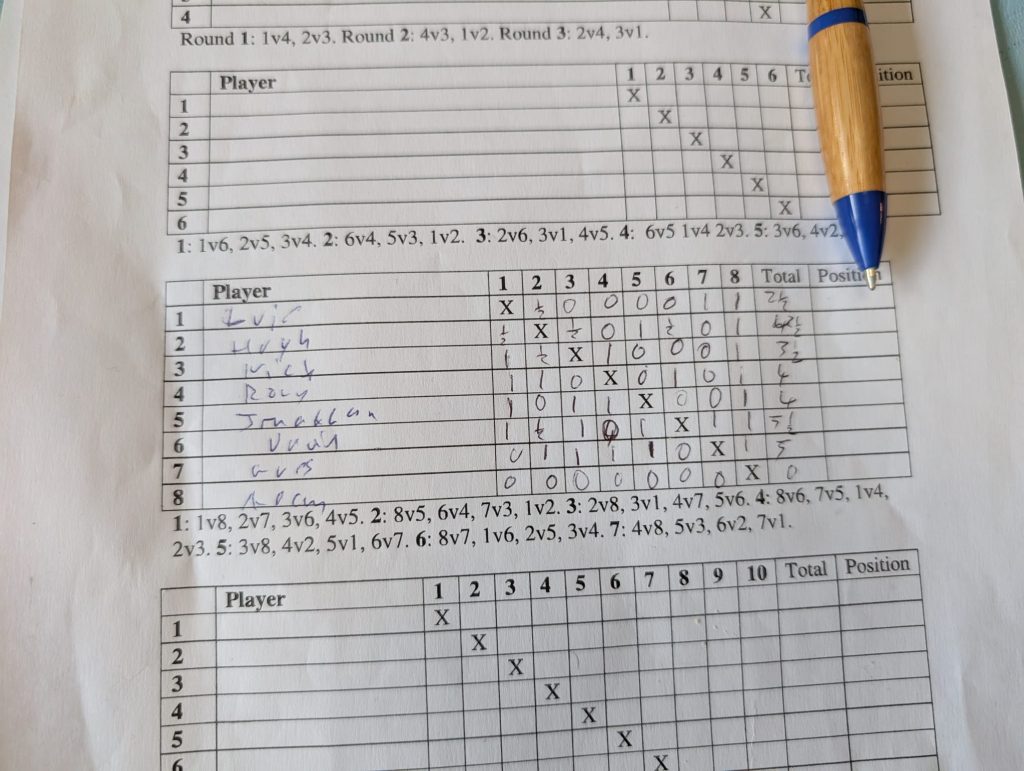 4 X
Round 1: 1v4, 2v3. Round 2: 4v3, 1v2. Round 3: 2v4, 3v1.
Player 1 2 3 4 5 6 ition
1 X
2 X
3 X
4 X
5 X
6 X
1: 1v6, 2v5, 3v4. 2: 6v4, 5v3, 1v2. 3: 2v6, 3v1, 4v5. 4: 6v5 1v4 2v3. 5: 3v6, 4v2,
Player 1 2 3 4 5 6 7 8 Total Position
1 X ½ 0 0 0 0 1 1 2½
2 Hugh ½ X ½ 0 1 ½ 0 1
3 Nick 1 ½ X 1 0 0 0 1 3½
4 Rory 1 1 0 X 0 1 0 1 4
5 Jonathan 1 0 1 1 X 0 0 1 4
6 1 ½ 1 1 X 1 1 5½
7 0 1 1 1 1 0 X 1 5
8 0 0 0 0 0 0 0 X 0
1: 1v8, 2v7, 3v6, 4v5. 2: 8v5, 6v4, 7v3, 1v2. 3: 2v8, 3v1, 4v7, 5v6. 4: 8v6, 7v5, 1v4,
2v3. 5: 3v8, 4v2, 5v1, 6v7. 6: 8v7, 1v6, 2v5, 3v4. 7: 4v8, 5v3, 6v2, 7v1.
Player 1 2 3 4 5 6 7 8 9 10 Total Position
1 X
2 X
3 X
4 X
5 X
6 X
X